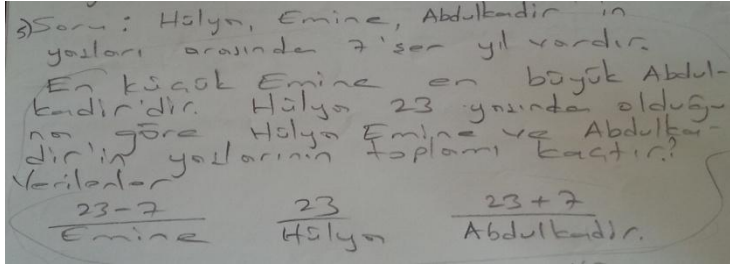 3) Soru: Hülya, Emine, Abdulkadir in
yaşları arasında 7'şer yıl vardır.
En küçük Emine en büyük Abdul-
kadir'dir. Hülya 23 yaşında olduğu-
na göre Hülya Emine ve Abdulka-
dir'in yaşlarının toplamı kaçtır?
Verilenler
23-7 23 23+7
Emine Hülya Abdulkadir.